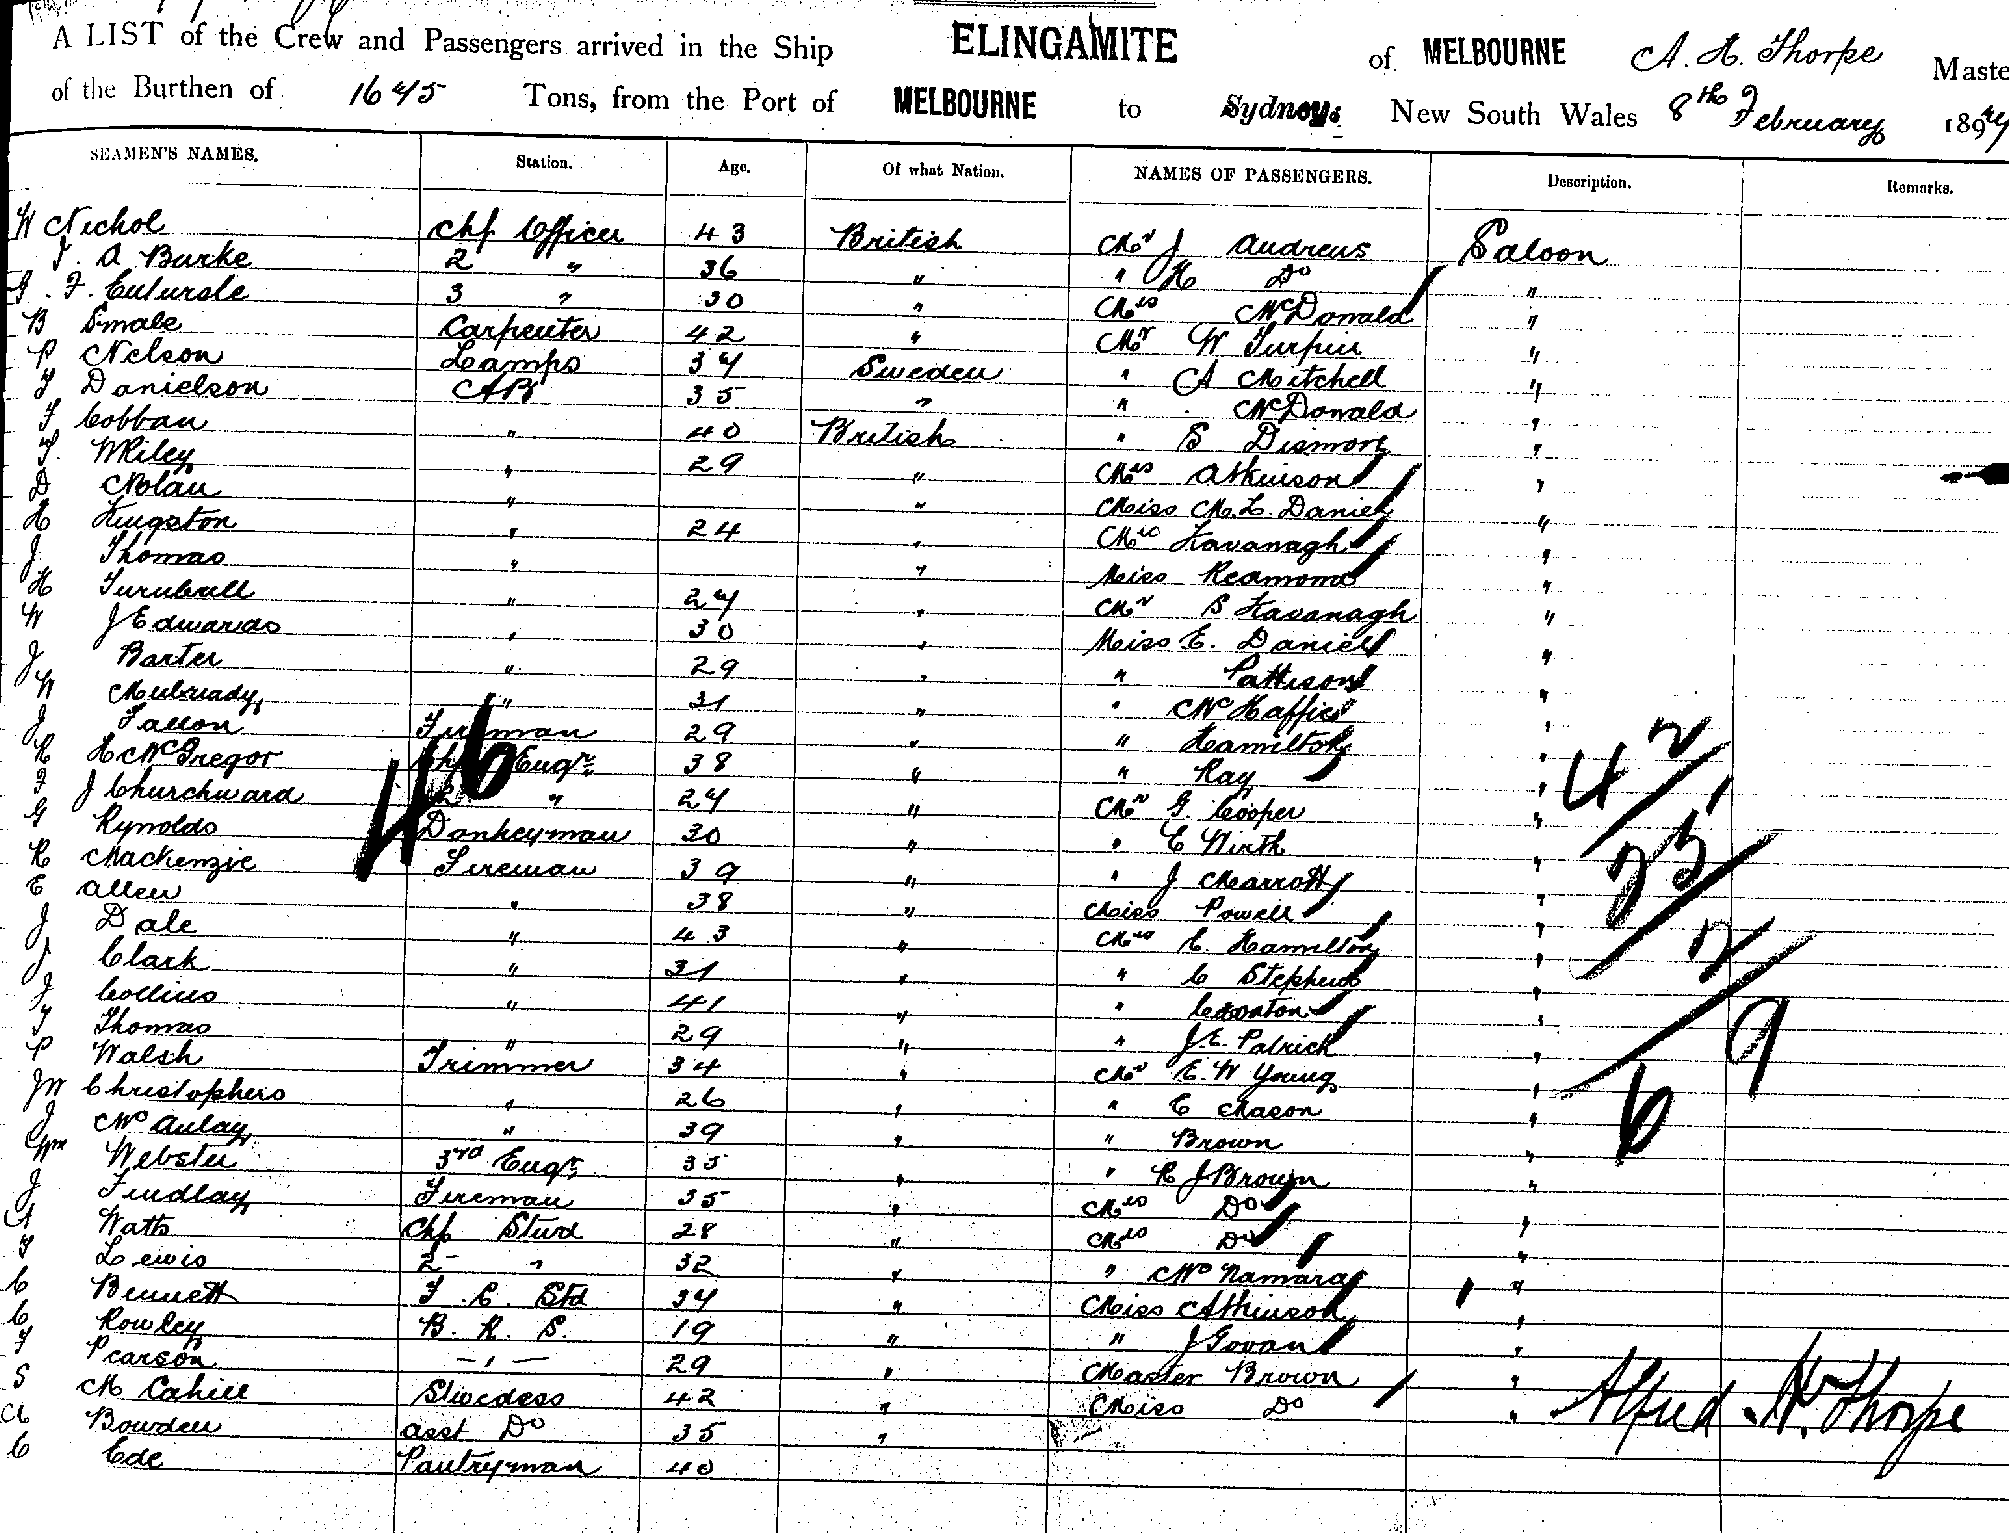 A LIST of the Crew and Passengers arrived in the Ship ELINGAMITE of MELBOURNE A. H. Thorpe Maste
of the Burthen of 1645 Tons, from the Port of MELBOURNE to Sydney New South Wales 8th February 189
SEAMEN'S NAMES. Station. Age. Of what Nation. NAMES OF PASSENGERS. Description. Remarks.
W Nichol Chf Officer 43 British Mr J Andrews Saloon
J. A Burke 2 " 36 " " H Do "
3 " 30 " Mrs McDonald "
B Smale Carpenter 42 " Mr W Turpin "
P Nelson Lamps 34 Sweden " A Mitchell "
Danielson AB 35 " " McDonald "
Cobban " 40 British " S Dismore "
W Riley " 29 " Mrs Atkinson "
D Nolan " " Miss M. L. Daniel "
H Kingston " 24 " Mrs Kavanagh "
J Thomas " " Miss "
H Turnbull " 24 " Mr S Kavanagh "
W J Edwards " 30 " Miss E. Daniel "
J Barter " 29 " " Pattison "
W " 31 " " McHaffie "
J Fallon Fireman 29 " " Hamilton "
R H McGregor Chf Engr 38 " " Ray "
F J Churchward 2 " 24 " Mr G Cooper "
G Rynolds Donkeyman 30 " " E Wirth "
R Mackenzie Fireman 39 " " J Marrott "
E Allen " 38 " Miss Powell "
J Dale " 43 " Mrs C. Hamilton "
J Clark " 31 " " C Stephens "
J Collins " 41 " " "
T Thomas " 29 " " J. E. Patrick "
P Walsh Trimmer 34 " Mr E. W Young "
JW Christophers " 26 " " E Mason "
J McAulay " 39 " " Brown "
Wm Webster 3rd Engr 35 " " R J Brown "
J Findlay Fireman 35 " Mrs Do "
A Watts Chf Stwd 28 " Mrs Do "
T Lewis 2 " 32 " " McNamara "
C Bennett F. C. Std 34 " Miss Atkinson "
C Rowley B. R. S. 19 " " J Govan "
T Pearson - " - 29 " Master Brown "
S M Cahill Stwdess 42 " Miss Do "
A Bowden asst Do 35 "
C Ede Pantryman 40
46
42
25
2
9
6
Alfred H. Thorpe